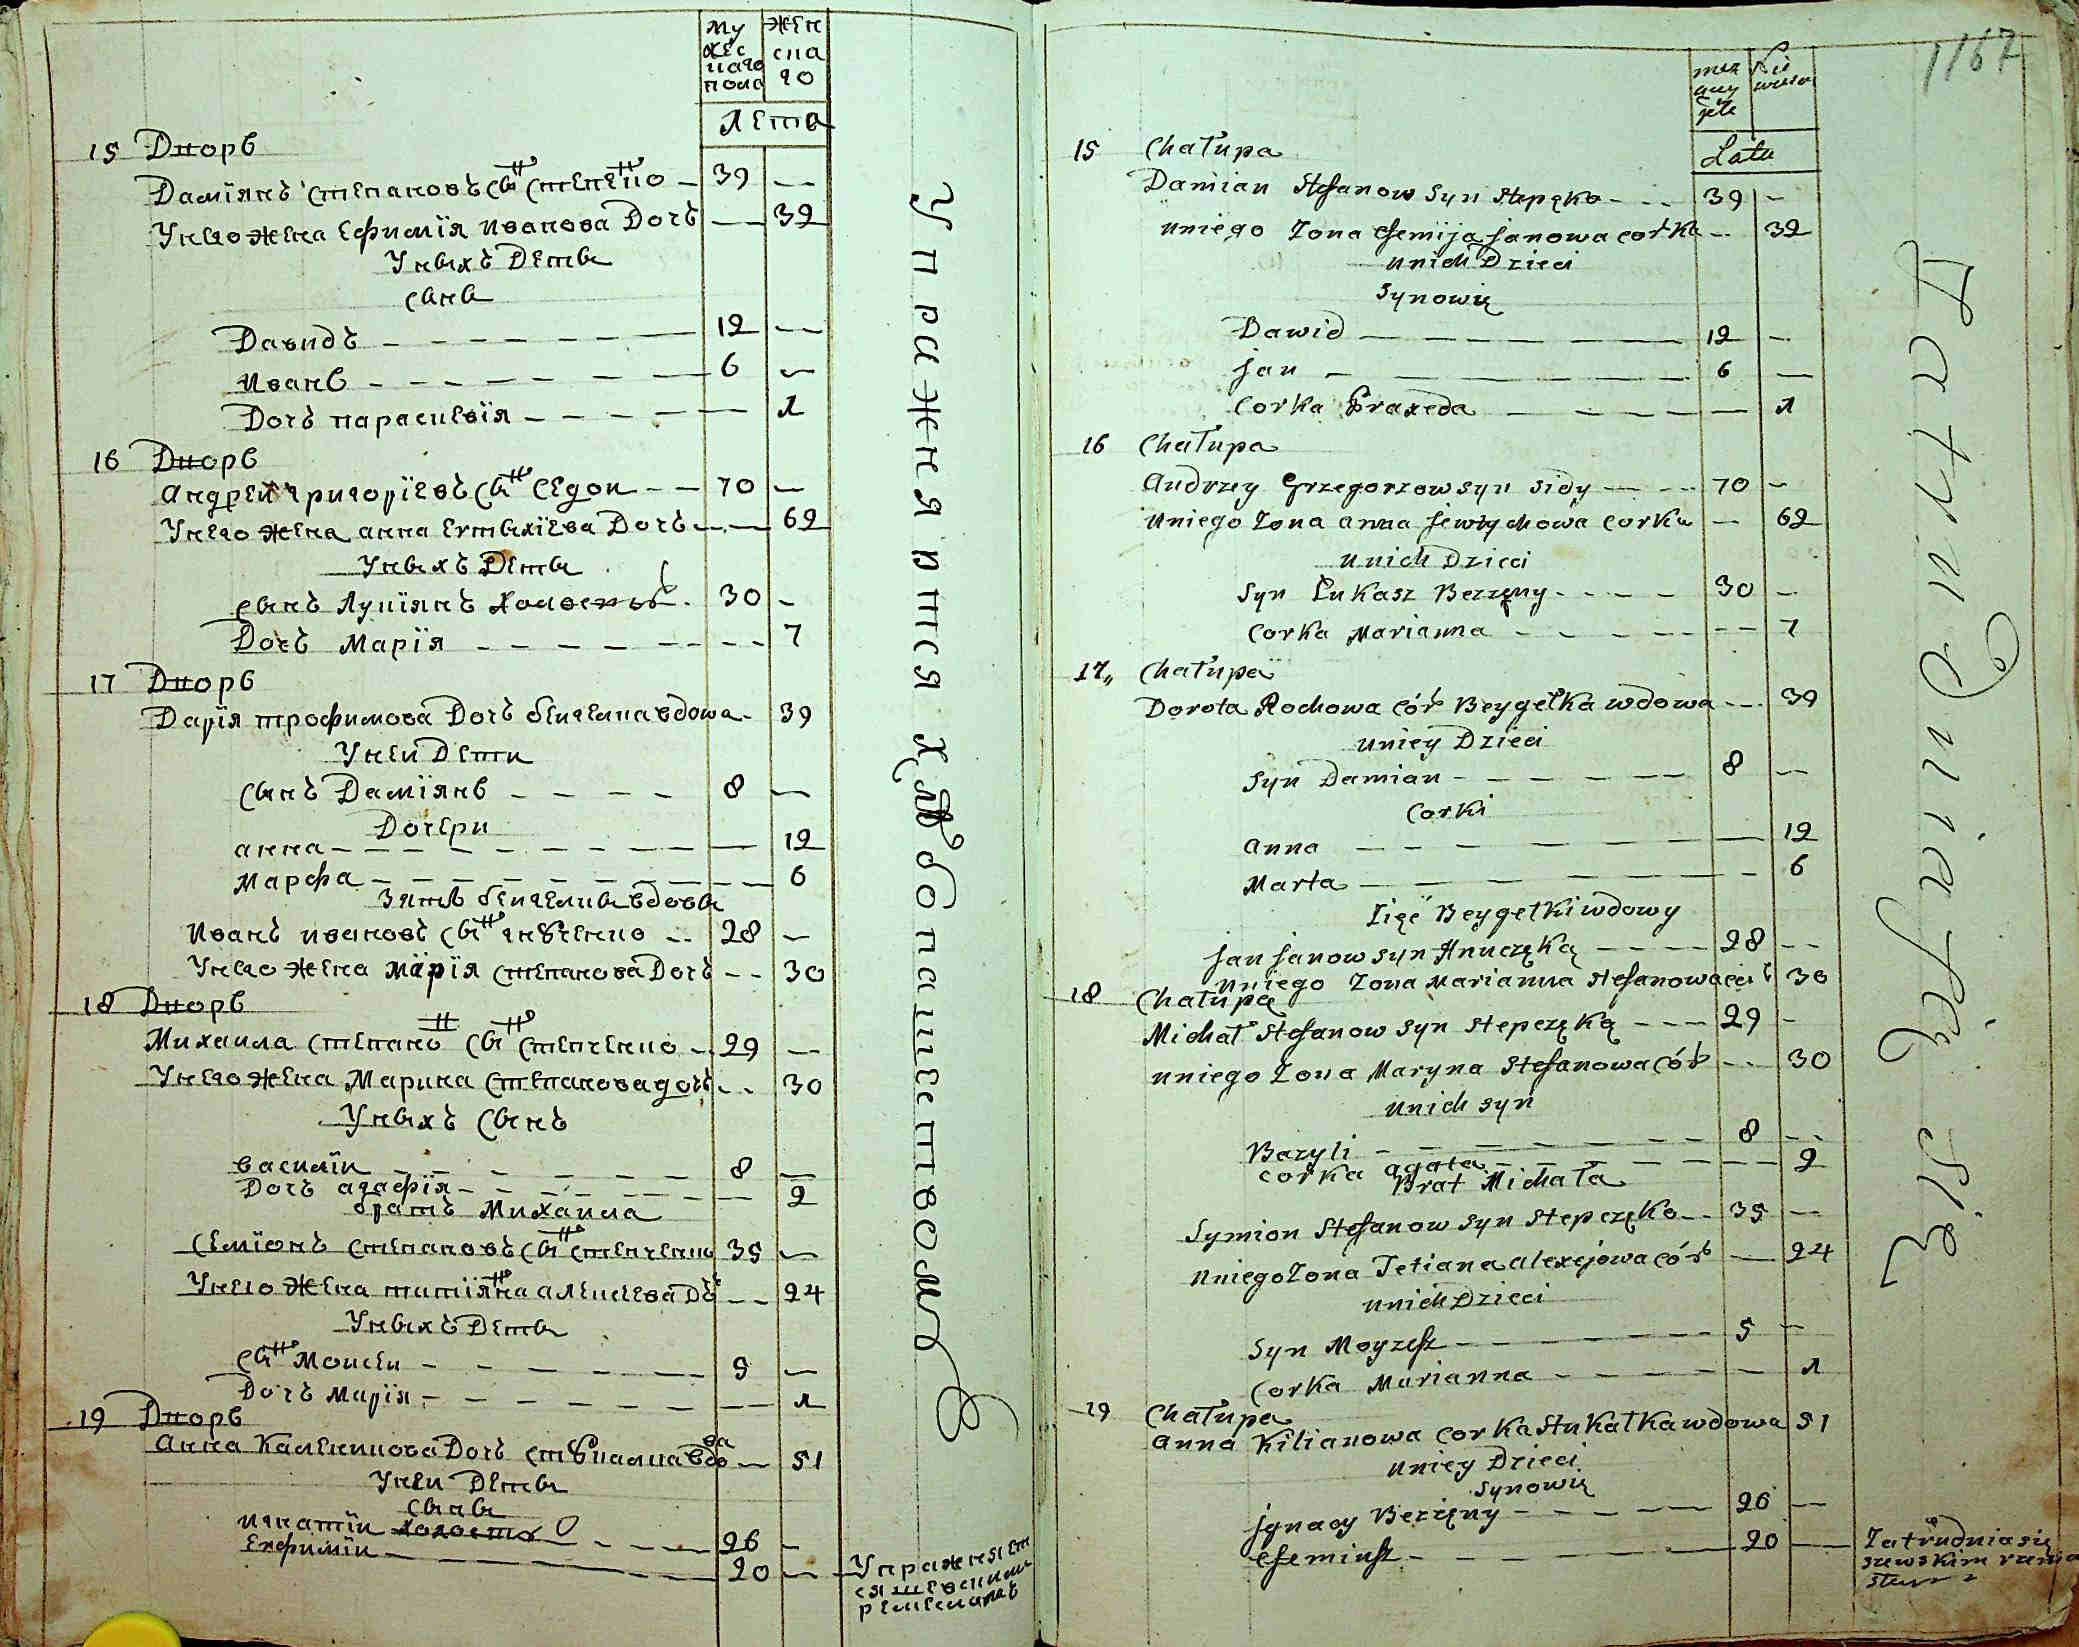 му жес каго пола
жен ска го
Лета
15 Дворъ
Даміянъ Степановъ сынъ Степенко — 39 —
У него жена Ефимія Иванова Дочь — 32
У ныхъ Деты
Сыны
Давидъ — 12 —
Иванъ — 6 —
Дочъ Параскевія — 1
16 Дворъ
Андрей Григоріевъ сынъ Седой — 70 —
У него жена Анна Евтыхіева Дочъ — 62
У ныхъ Деты
Сынъ Лукіянъ Холостъ 30 —
Дочъ Марія — 7
17 Дворъ
Дарія Трофимова Дочъ вдова 39
У ней Дети
Сынъ Даміянъ — 8 —
Дочери
Анна — 12
Марфа — 6
Зять вдовы
Иванъ Ивановъ сынъ — 28 —
У него жена Марія Степанова Дочъ — 30
18 Дворъ
Михаила Степано сынъ Степченко — 29 —
У него жена Марина Степанова дочъ — 30
У ныхъ Сынъ
Василій — 8 —
Дочъ Агафія — 2
братъ Михаила
Семіонъ Степановъ сынъ Степченко 35 —
У него жена Татіяна Алексеева — 24
У ныхъ Деты
Сынъ Мойсей — 5 —
Дочъ Марія — 1
19 Дворъ
Анна Дочъ вдова — 51
У ней Деты
Сыны
Игнатій — 26 —
Евфимій — 20 —
Упражняет ся шевскимъ ремесломъ
Упражняются хлебопашеством
1167
męz czyz
Lata
15 Chałupa
Damian Stefanow Syn Stepęko — 39 —
uniego Żona Efemija Janowa corka — 32
unich Dzieci
Synowię
Dawid — 12 —
Jan — 6 —
Corka Praxeda — 1
16 Chałupa
Andrzey Grzegorzow syn Sidy — 70 —
uniego Żona Anna Jewtychowa Corka — 62
unich Dzieci
Syn Łukasz Bezżęny — 30 —
Corka Marianna — 7
17 Chałupa
Dorota Rochowa Cór Beygełka wdowa — 39
uniey Dzieci
Syn Damian — 8 —
Corki
Anna — 12
Marta — 6
Zięć Beygełki wdowy
Jan Janow syn Anuczęką — 28 —
uniego Żona Marianna Stefanowa cór 30
18 Chałupa
Michał Stefanow Syn Stepczęką — 29 —
uniego Żona Maryna Stefanowa Cór — 30
unich syn
Bazyli — 8 —
Corka Agata — 2
Brat Michała
Symion Stefanow syn Stepczęko — 35 —
uniego Żona Tetiana Alexejowa Cór — 24
unich Dzieci
Syn Moyzesz — 5 —
Corka Marianna — 1
19 Chałupa
Anna Kilianowa Corka Stukałka wdowa 51
uniey Dzieci
Synowię
Jgnacy Bezżęny — 26 —
Efemiusz — 20 —
Zatrudnia się szewskim rzemiosłem
Zatrudniaią się